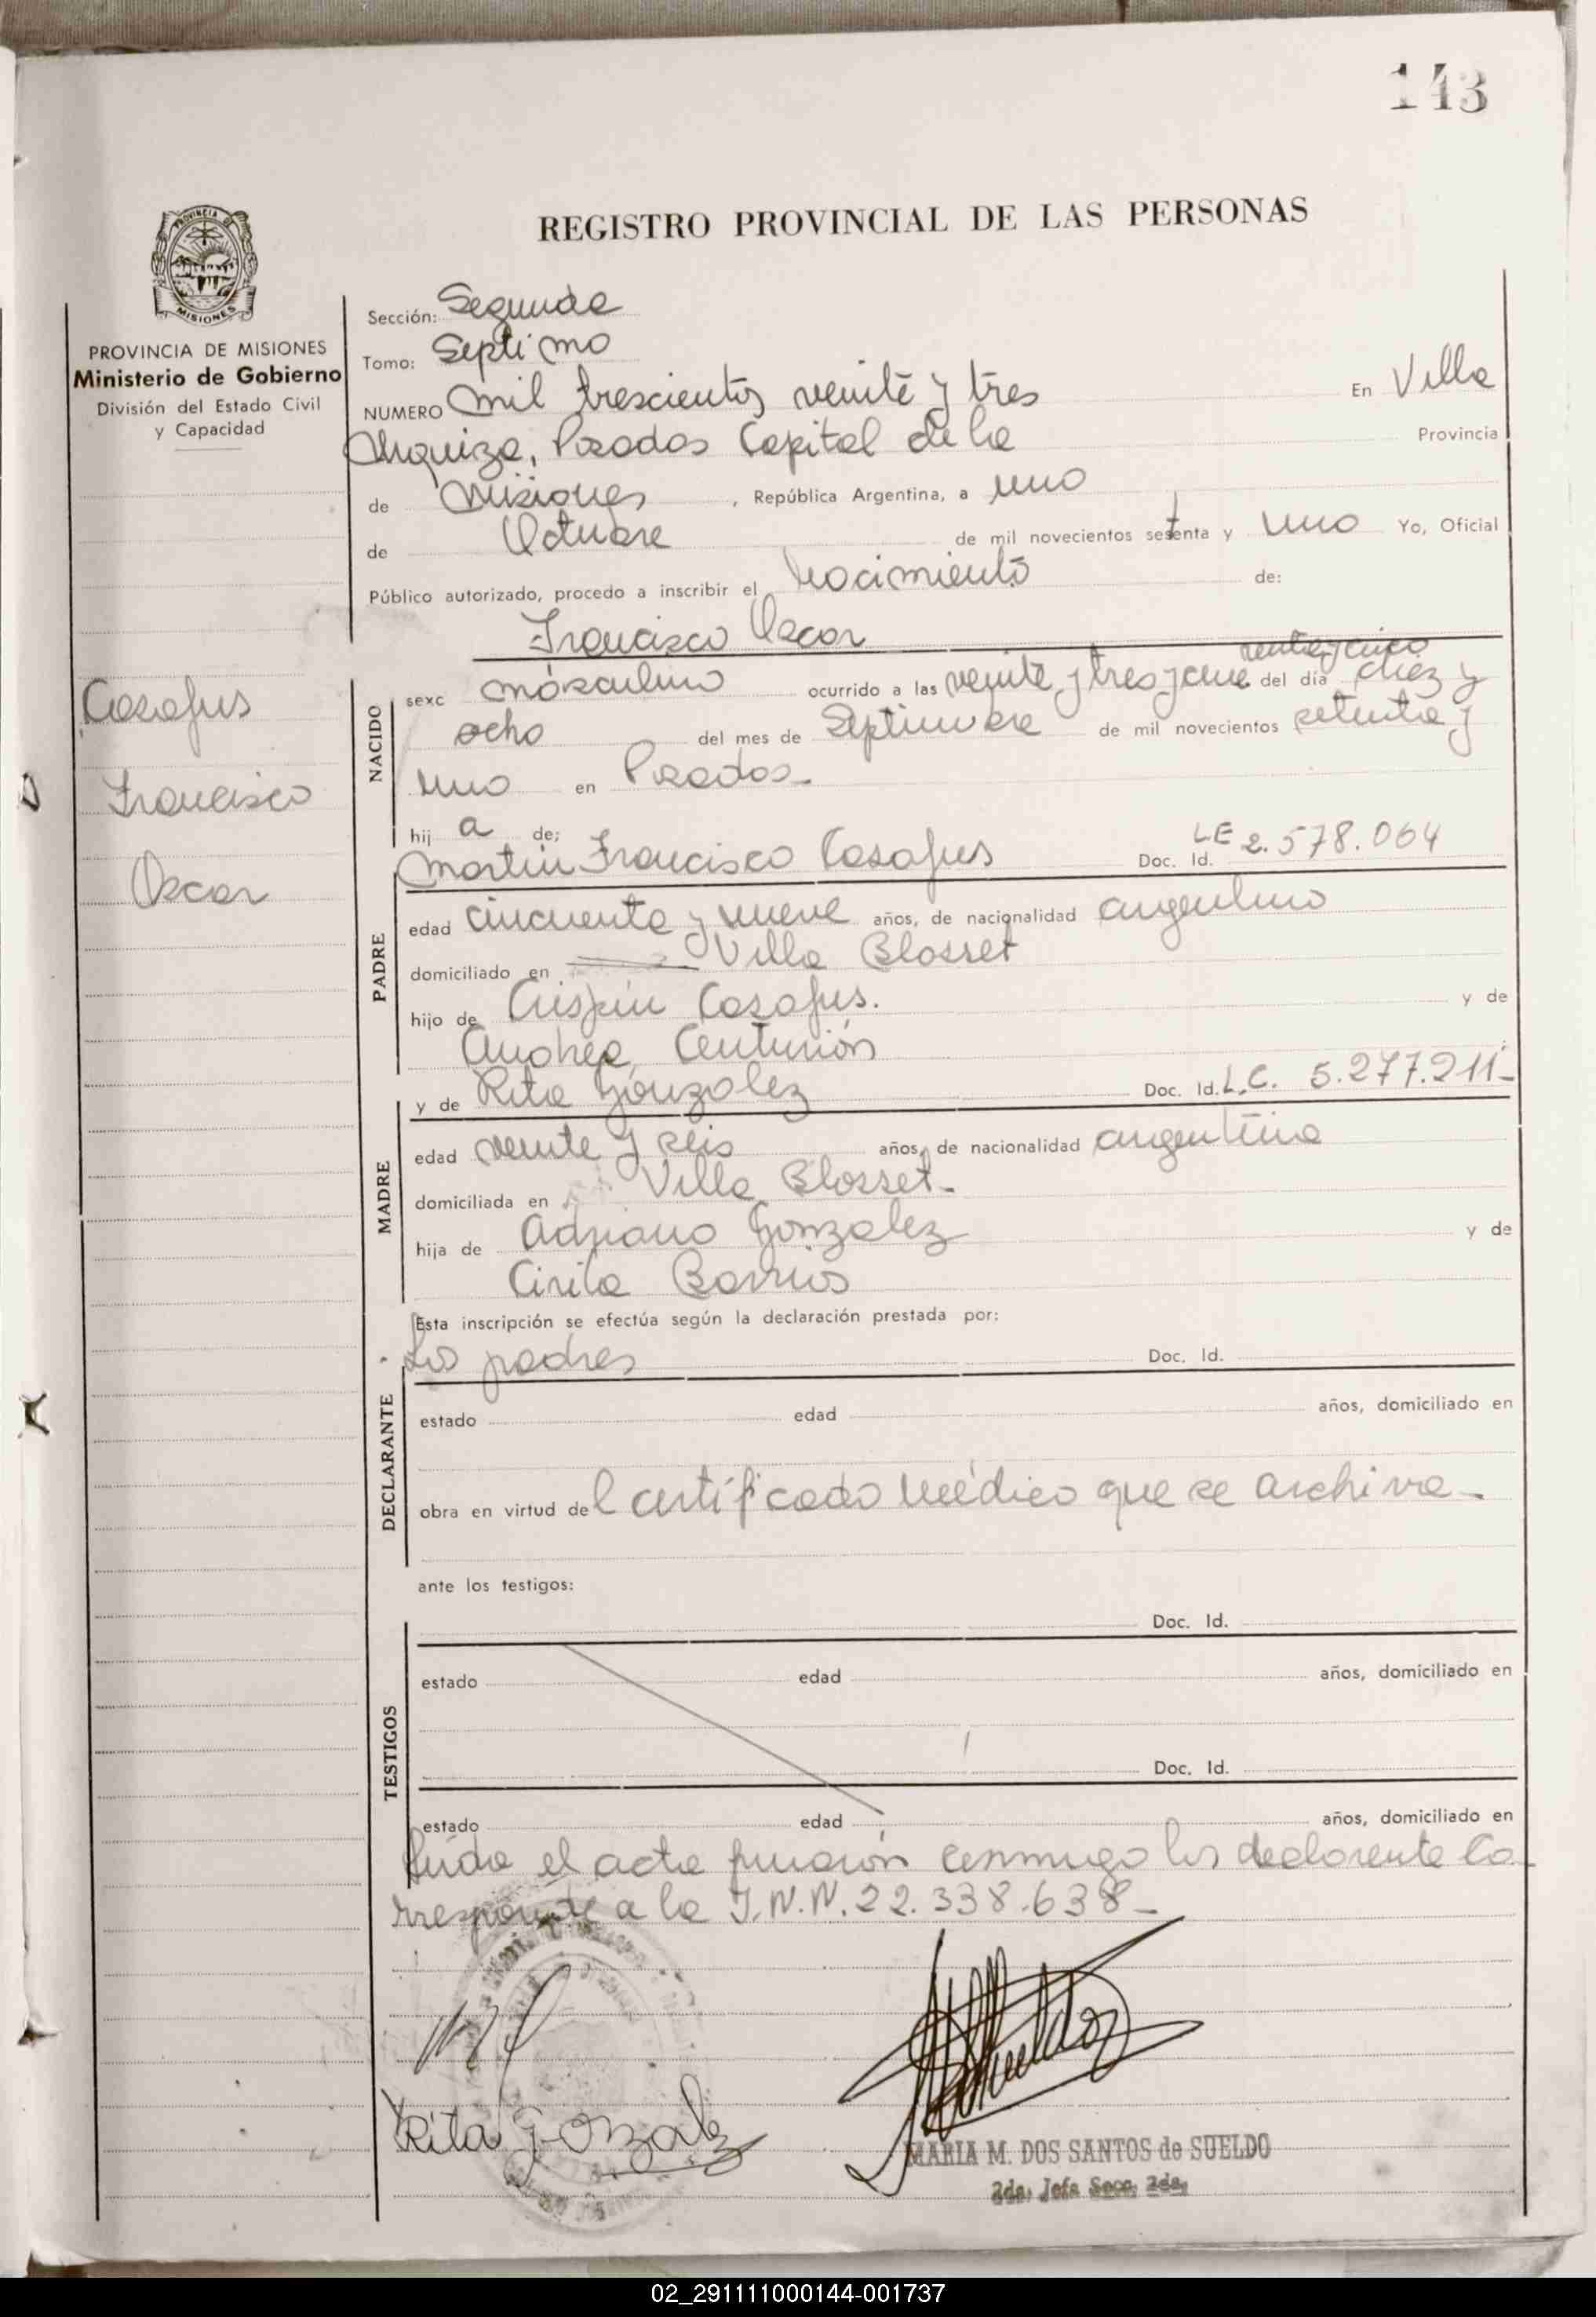 143
REGISTRO PROVINCIAL DE LAS PERSONAS
PROVINCIA DE MISIONES
MISIONES
PROVINCIA DE MISIONES
Ministerio de Gobierno
División del Estado Civil
y Capacidad
Sección: Segunda
Tomo: Septimo
NUMERO mil trescientos veinte y tres En Villa
Urquiza, Posadas Capital de la Provincia
de Misiones, República Argentina, a uno
de Octubre de mil novecientos setenta y uno Yo, Oficial
Público autorizado, procedo a inscribir el nacimiento de:
Francisco Oscar
Casafus
Francisco
Oscar
NACIDO
veinte y cinco
sexo másculino ocurrido a las veinte y tres y del día diez y
ocho del mes de Septiembre de mil novecientos setenta y
uno en Posadas-
hij a de;
Martin Francisco Casafus Doc. Id. LE 2.578.064
PADRE
edad cincuenta y nueve años, de nacionalidad argentino
domiciliado en Villa Blosset
hijo de Crispin Casafus. y de
Andrea Centurión
y de Rita Gonzalez Doc. Id. L.C. 5.277.211-
MADRE
edad veinte y seis años, de nacionalidad argentina
domiciliada en Villa Blosset-
hija de Adriano Gonzalez y de
Cirila Barrios
Esta inscripción se efectúa según la declaración prestada por:
Los padres Doc. Id.
DECLARANTE
estado edad años, domiciliado en
obra en virtud del certificado médico que se archiva-
ante los testigos:
Doc. Id.
TESTIGOS
estado edad años, domiciliado en
Doc. Id.
estado edad años, domiciliado en
leida el acta firmaron conmigo los declarente Co
rresponde a la I.N.N. 22.338.638-
Rita Gonzalez
MARIA M. DOS SANTOS de SUELDO
2da. Jefa Secc. 2da.
02_291111000144-001737